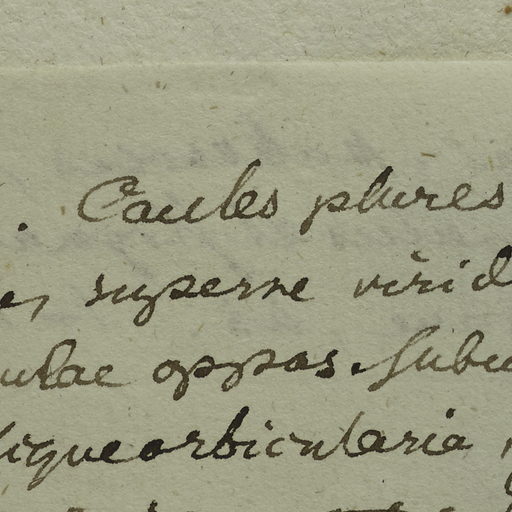 . Caules plures
superne virid
ulae oppos. Subu
liqueorbicularia,